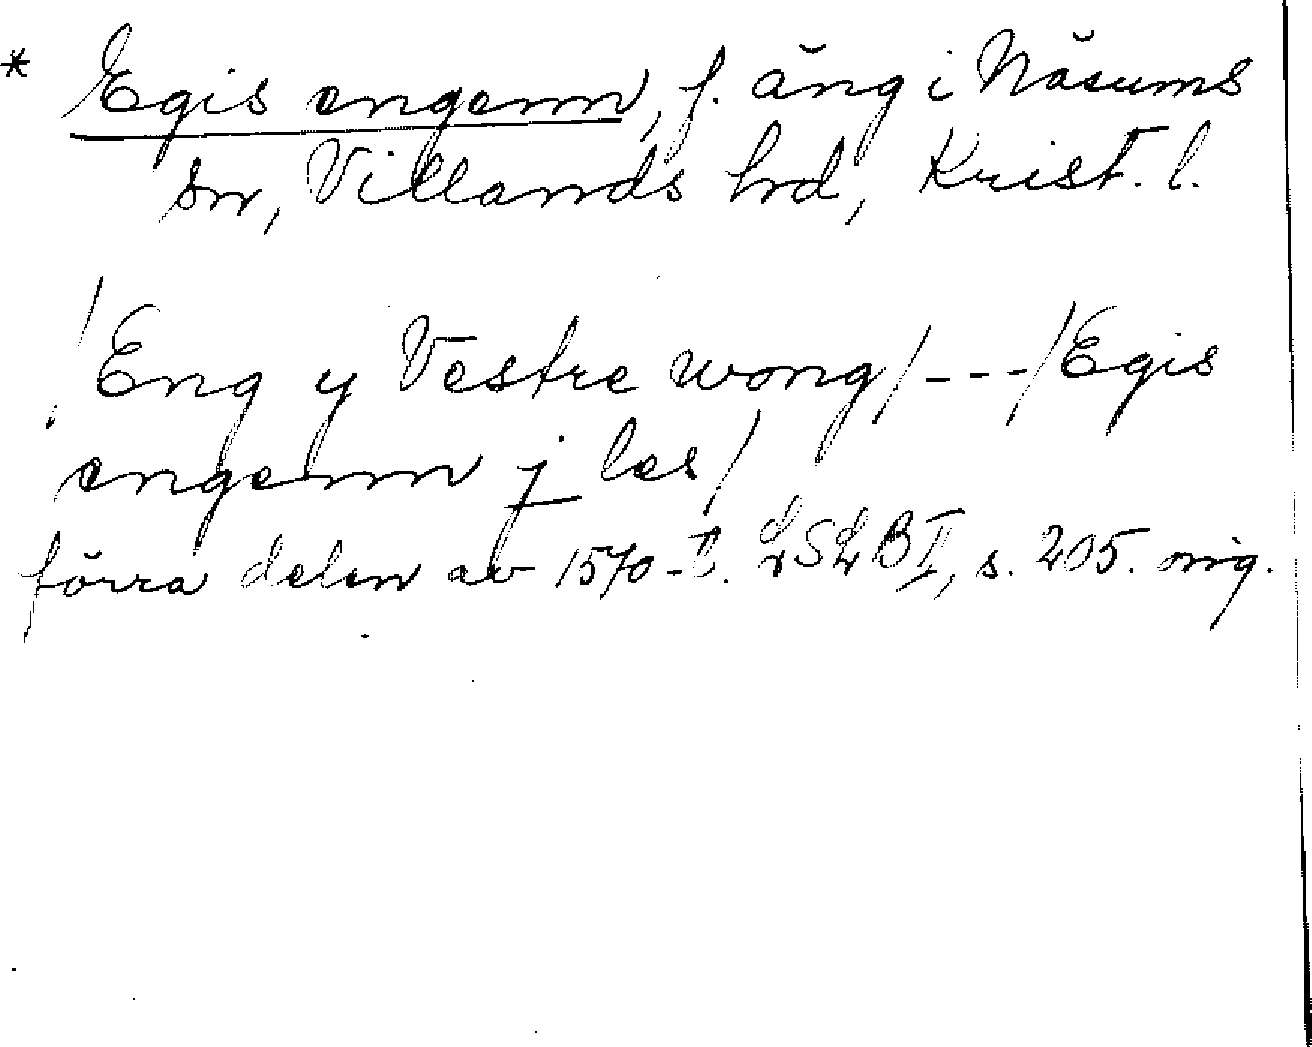 * Egis engenn, f. äng i Näsums
sn, Villands hd, Krist. l.
/Eng y Vestre wong/---/Egis
engenn j les/
förra delen av 1570-t. LSLB II, s. 205. orig.